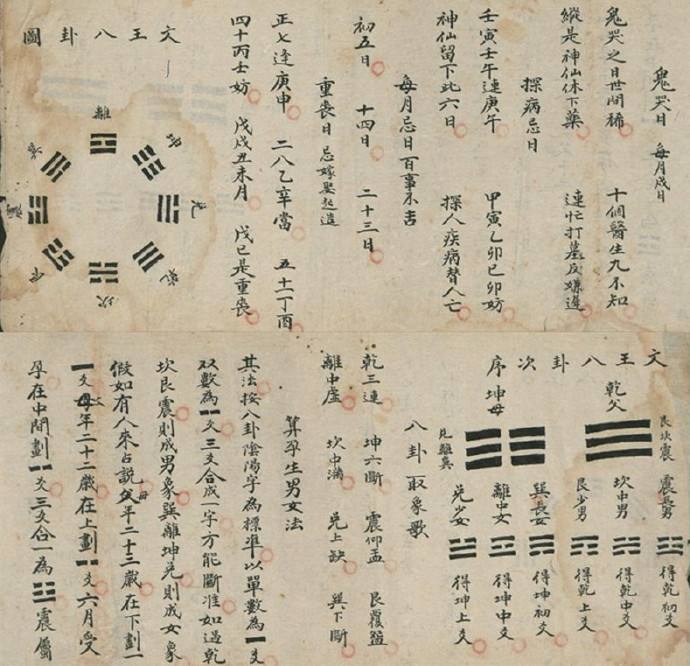 鬼哭日 每月戌日
鬼哭之日世間稀 十個醫生九不知
縱是神仙休下藥 連忙打墓反嫌遲
探病忌日
壬寅壬午連庚午 甲寅乙卯己卯妨
神仙留下此六日 探人疾病替人亡
每月忌日百事不吉
初五日 十四日 二十三日
重喪日 忌嫁娶起造
正七逢庚申 二八乙辛當 五十一丁酉
四十丙壬妨 戊戌丑未月 戊己是重喪
文王八卦圖
離
坤
兌
乾
坎
巽
文王八卦次序
乾父
坤母
艮坎震
兌離巽
震長男 ☳ 得乾初爻
坎中男 ☵ 得乾中爻
艮少男 ☶ 得乾上爻
巽長女 ☴ 得坤初爻
離中女 ☲ 得坤中爻
兌少女 ☱ 得坤上爻
八卦取象歌
乾三連 坤六斷 震仰盂 艮覆盌
離中虛 坎中滿 兌上缺 巽下斷
算孕生男女法
其法按八卦陰陽字為標準以單數為一爻
双數為⚋爻三爻合成一字方能斷准如過乾
坎艮震則成男象巽離坤兌則成女象
假如有人來占説父年二十三歲在下劃一
一爻母年二十二歲在上劃⚋爻六月受
孕在中間劃⚋爻三爻合一為☳震屬